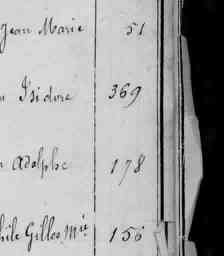 Jean Marie 51
n Isidore 369
n Adolphe 178
hile Gilles Mie 156